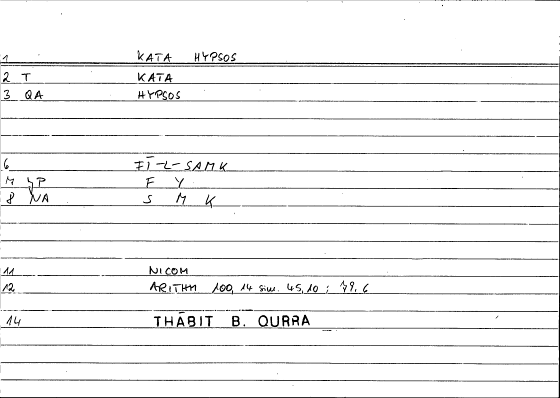 1 KATA HYPSOS
2 T KATA
3 QA HYPSOS
6 FĪ-L-SAMK
F Y
8 NA S M K
11 NICOM
12 ARITHM 100, 14 sim. 45,10 ; 79,6
14 THĀBIT B. QURRA